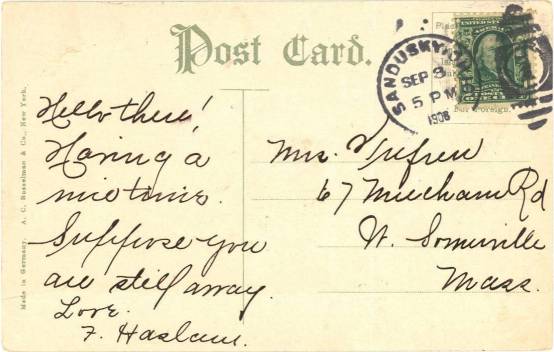 Post Card.
SANDUSKY
SEP 3
5 PM
1908
Hello there!
Having a
nice time.
Suppose you
are still away.
Love.
F. Haslam.
Mrs.
67 Meacham Rd
W. Somerville
Mass.
Made in Germany. A. C. Bosselman & Co., New York.